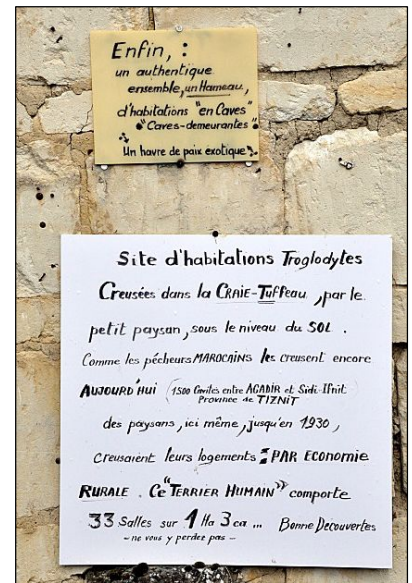 Enfin, :
un authentique
ensemble, un Hameau,
d'habitations "en Caves"
"Caves-demeurantes"
Un havre de paix exotique".
Site d'habitations Troglodytes
Creusées dans la CRAIE-TuFFeau, par le
petit paysan, sous le niveau du SOL.
Comme les pêcheurs MAROCAINS les creusent encore
AUJOURD'HUI (1500 Cavités entre AGADIR et Sidi-Ifnit
Province de TIZNIT
des paysans, ici même, jusqu'en 1930,
creusaient leurs logements : PAR ECONOMIE
RURALE. Ce "TERRIER HUMAIN" comporte
33 Salles sur 1 Ha 3 ca... Bonne Decouvertes
- ne vous y perdez pas -